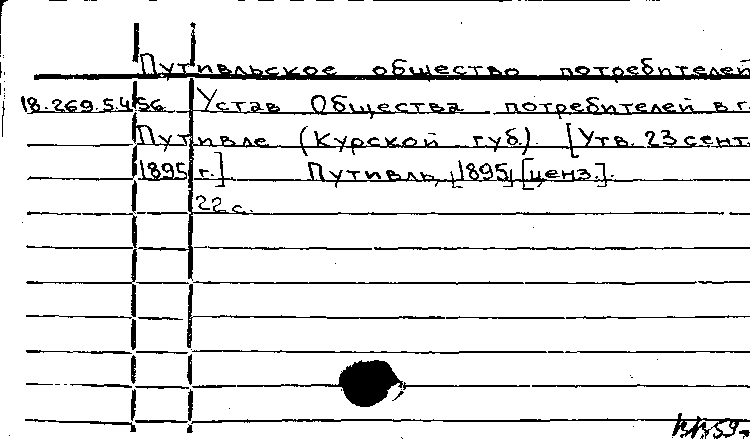 Путивльское общество потребителей
18.269.5.456 Устав Общества потребителей в г.
Путивле (Курской губ). [Утв. 23 сент.
1895 г.] Путивль, 1895, [ценз.].
22 с.